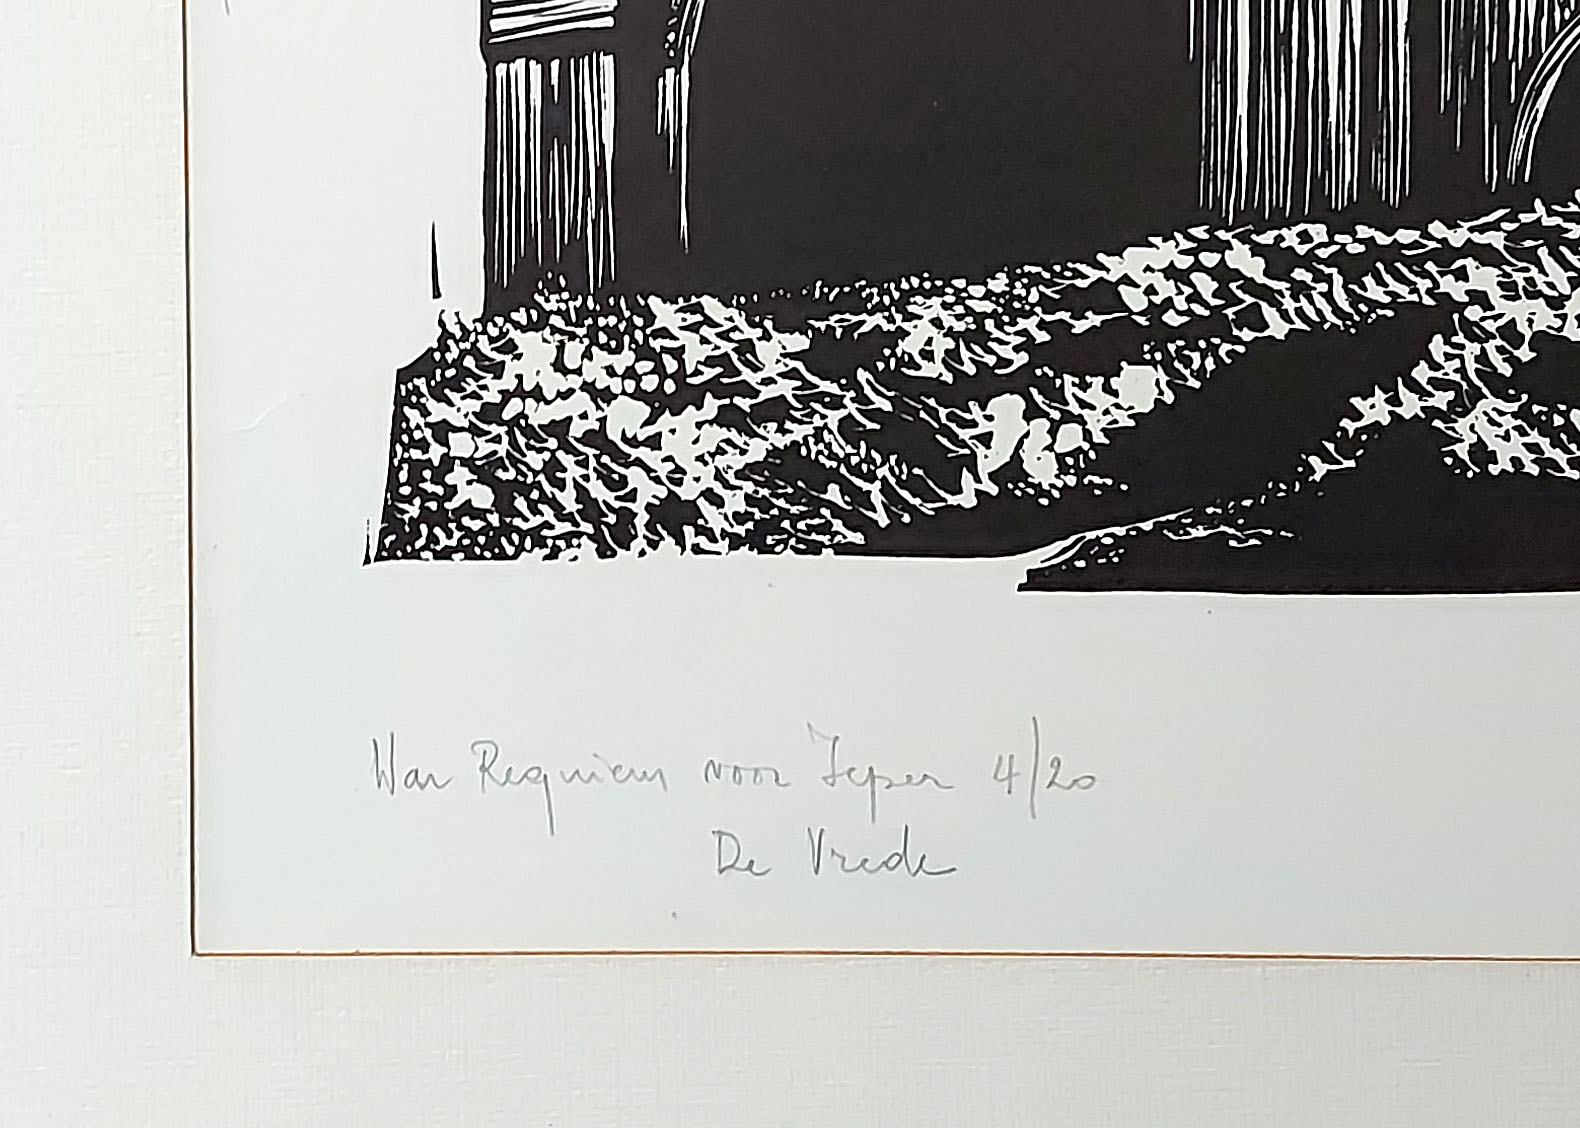 War Requiem voor Ieper 4/20
De Vrede